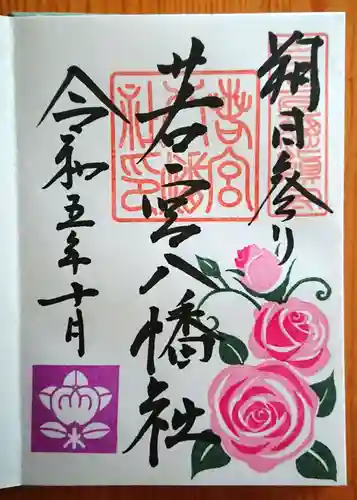 朔日参り
若宮八幡社
令和五年十月
若宮八幡社印